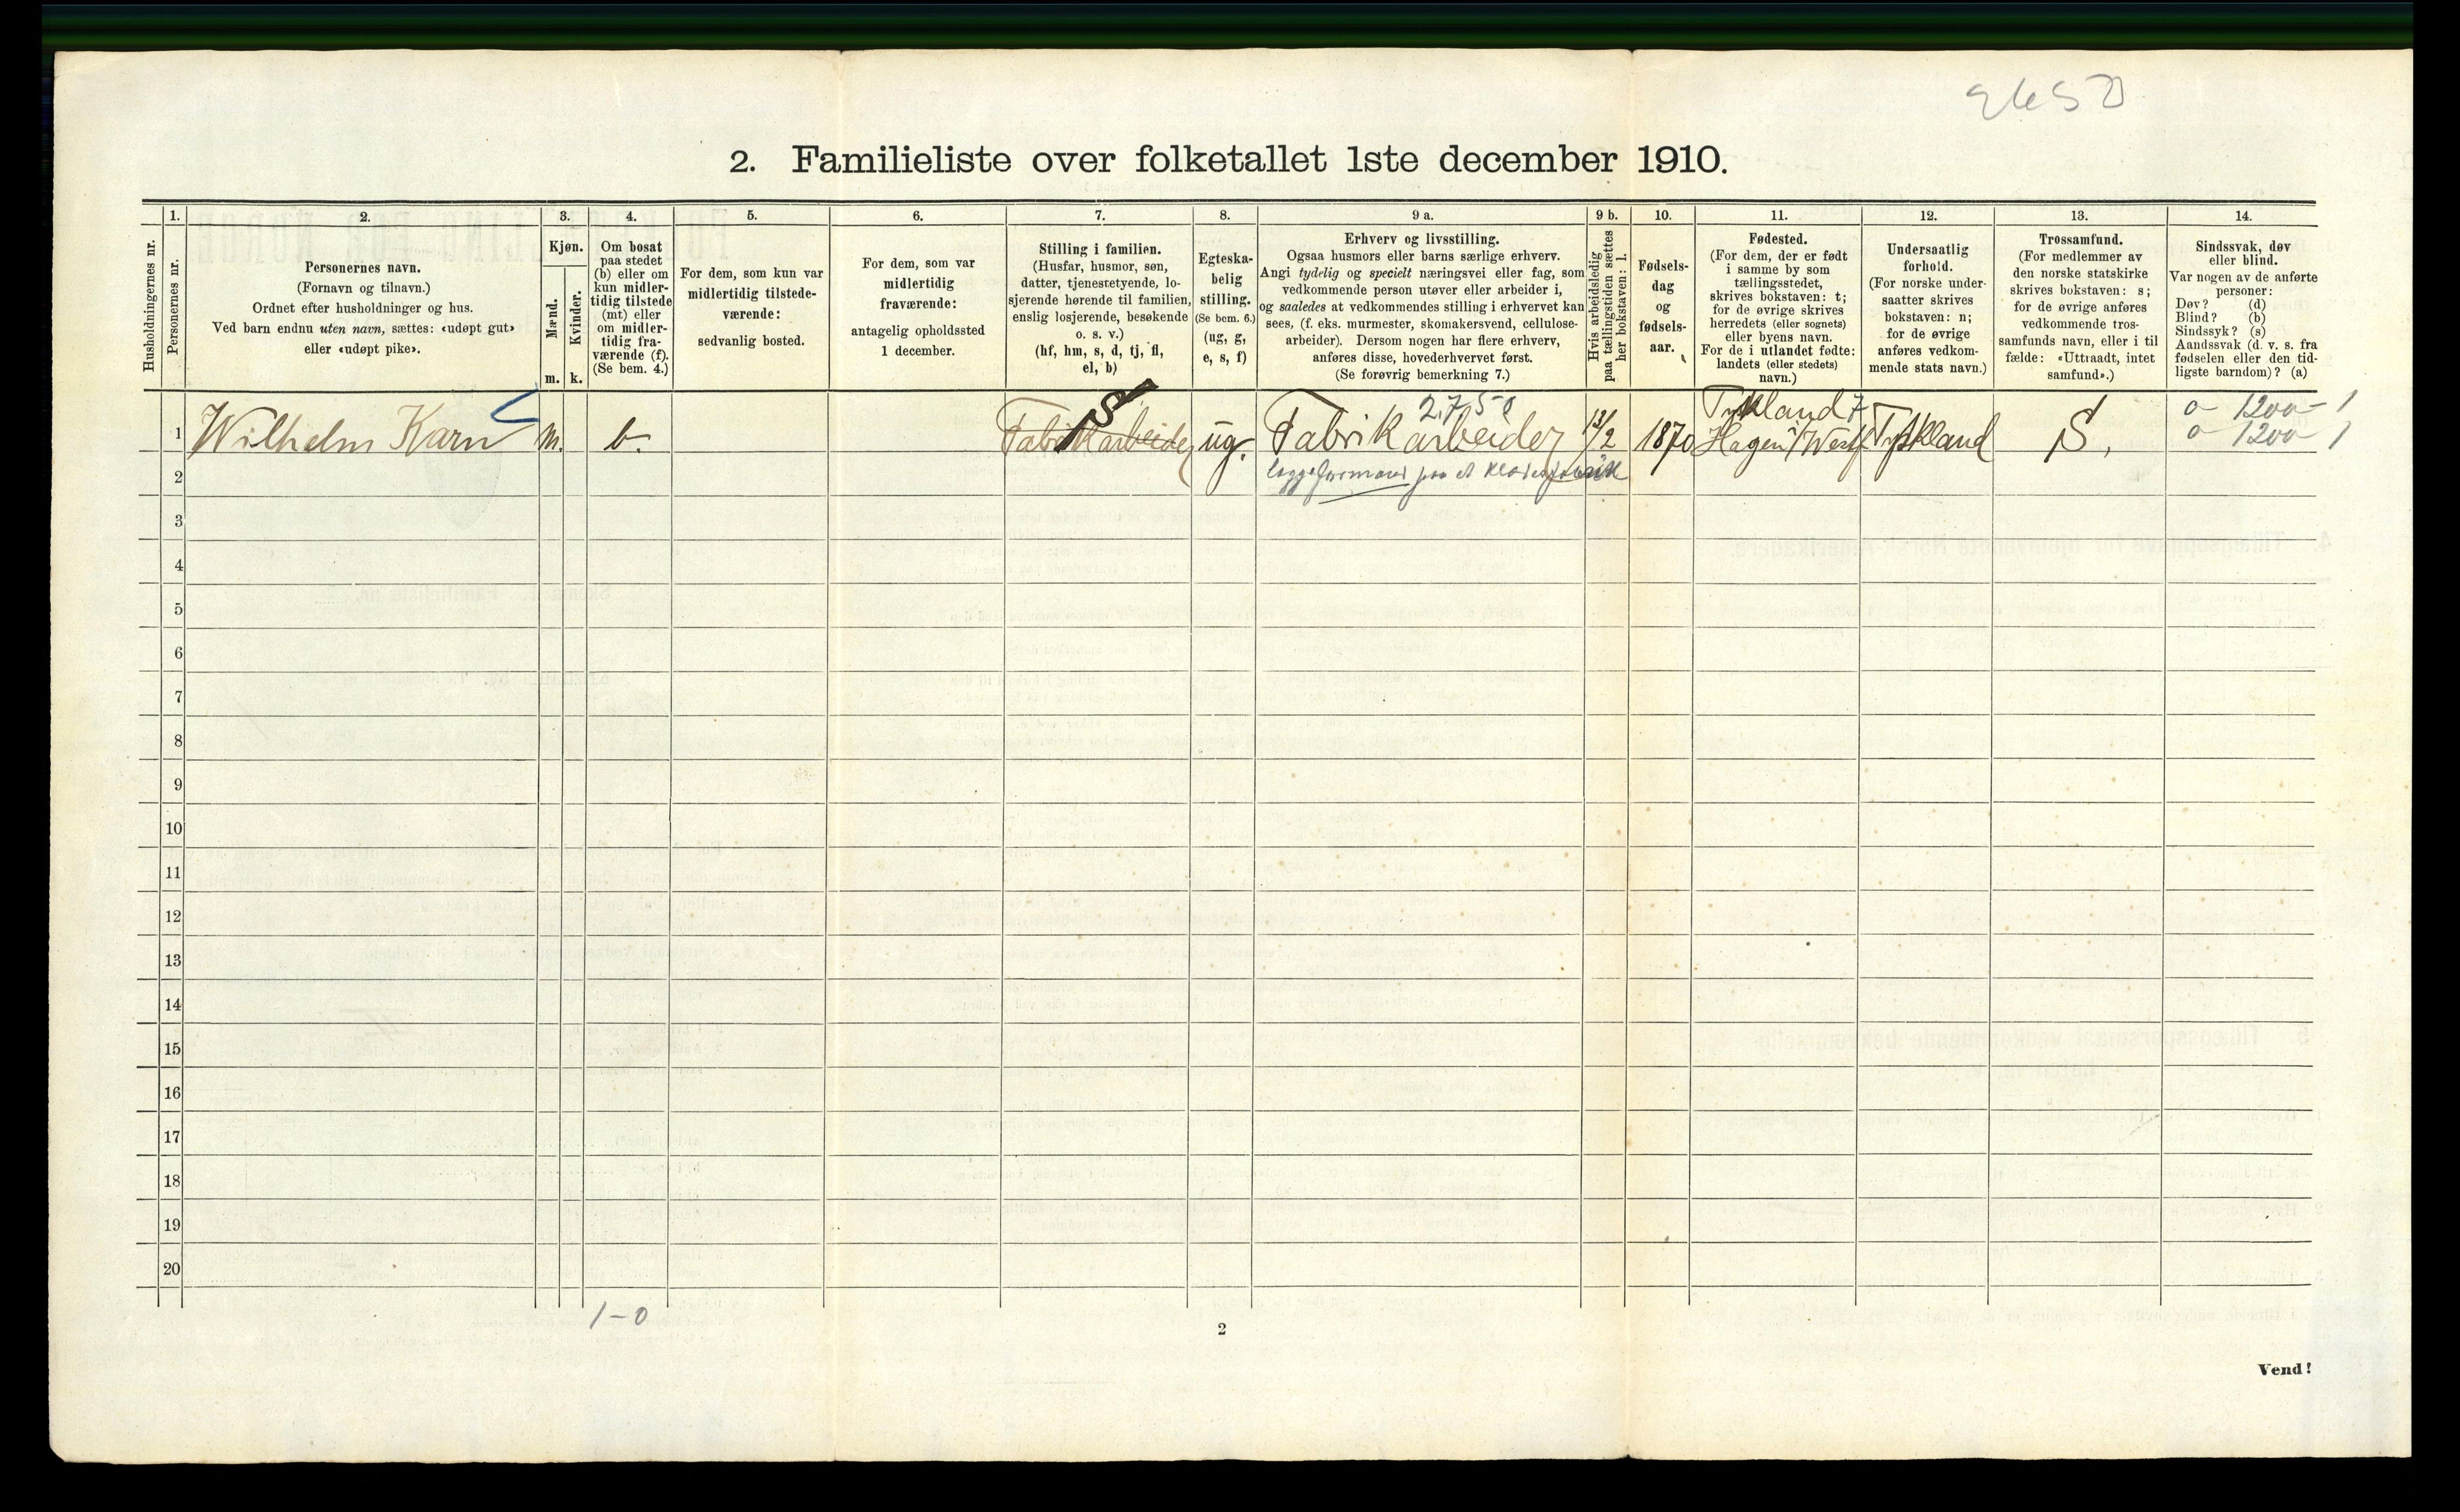 2. Familieliste over folketallet 1ste december 1910.
Husholdningernes nr.
1.
Personernes nr.
2.
Personernes navn.
(Fornavn og tilnavn.)
Ordnet efter husholdninger og hus.
Ved barn endnu uten navn, sættes: «udøpt gut»
eller «udøpt pike».
3.
Kjøn.
Mænd.
Kvinder.
m. k.
4.
Om bosat
paa stedet
(b) eller om
kun midler-
tidig tilstede
(mt) eller
om midler-
tidig fra-
værende (f).
(Se bem. 4.)
5.
For dem, som kun var
midlertidig tilstede-
værende:
sedvanlig bosted.
6.
For dem, som var
midlertidig
fraværende:
antagelig opholdssted
1 december.
7.
Stilling i familien.
(Husfar, husmor, søn,
datter, tjenestetyende, lo-
sjerende hørende til familien,
enslig losjerende, besøkende
o. s. v.)
(hf, hm, s, d, tj, fl,
el, b)
8.
Egteska-
belig
stilling.
(Se bem. 6.)
(ug, g,
e, s, f)
9 a.
Erhverv og livsstilling.
Ogsaa husmors eller barns særlige erhverv.
Angi tydelig og specielt næringsvei eller fag, som
vedkommende person utøver eller arbeider i,
og saaledes at vedkommendes stilling i erhvervet kan
sees, (f. eks. murmester, skomakersvend, cellulose-
arbeider). Dersom nogen har flere erhverv,
anføres disse, hovederhvervet først.
(Se forøvrig bemerkning 7.)
9 b.
Hvis arbeidsledig
paa tællingstiden sættes
her bokstaven: l.
10.
Fødsels-
dag
og
fødsels-
aar.
11.
Fødested.
(For dem, der er født
i samme by som
tællingsstedet,
skrives bokstaven: t;
for de øvrige skrives
herredets (eller sognets)
eller byens navn.
For de i utlandet fødte:
landets (eller stedets)
navn.)
12.
Undersaatlig
forhold.
(For norske under-
saatter skrives
bokstaven: n;
for de øvrige
anføres vedkom-
mende stats navn.)
13.
Trossamfund.
(For medlemmer av
den norske statskirke
skrives bokstaven: s;
for de øvrige anføres
vedkommende tros-
samfunds navn, eller i til
fælde: «Uttraadt, intet
samfund».)
14.
Sindssvak, døv
eller blind.
Var nogen av de anførte
personer:
Døv? (d)
Blind? (b)
Sindssyk? (s)
Aandssvak (d. v. s. fra
fødselen eller den tid-
ligste barndom)? (a)
1 Wilhelm Karn m. b. Fabrikarbeider ug. Fabrikarbeider 13/2 1870 Tyskland Hagen i/Westf Tyskland S.
o 1200 - 1
o 1200 1
2 paa et klædesfabrik
3
4
5
6
7
8
9
10
11
12
13
14
15
16
17
18
19
20
1-0
2
Vend!